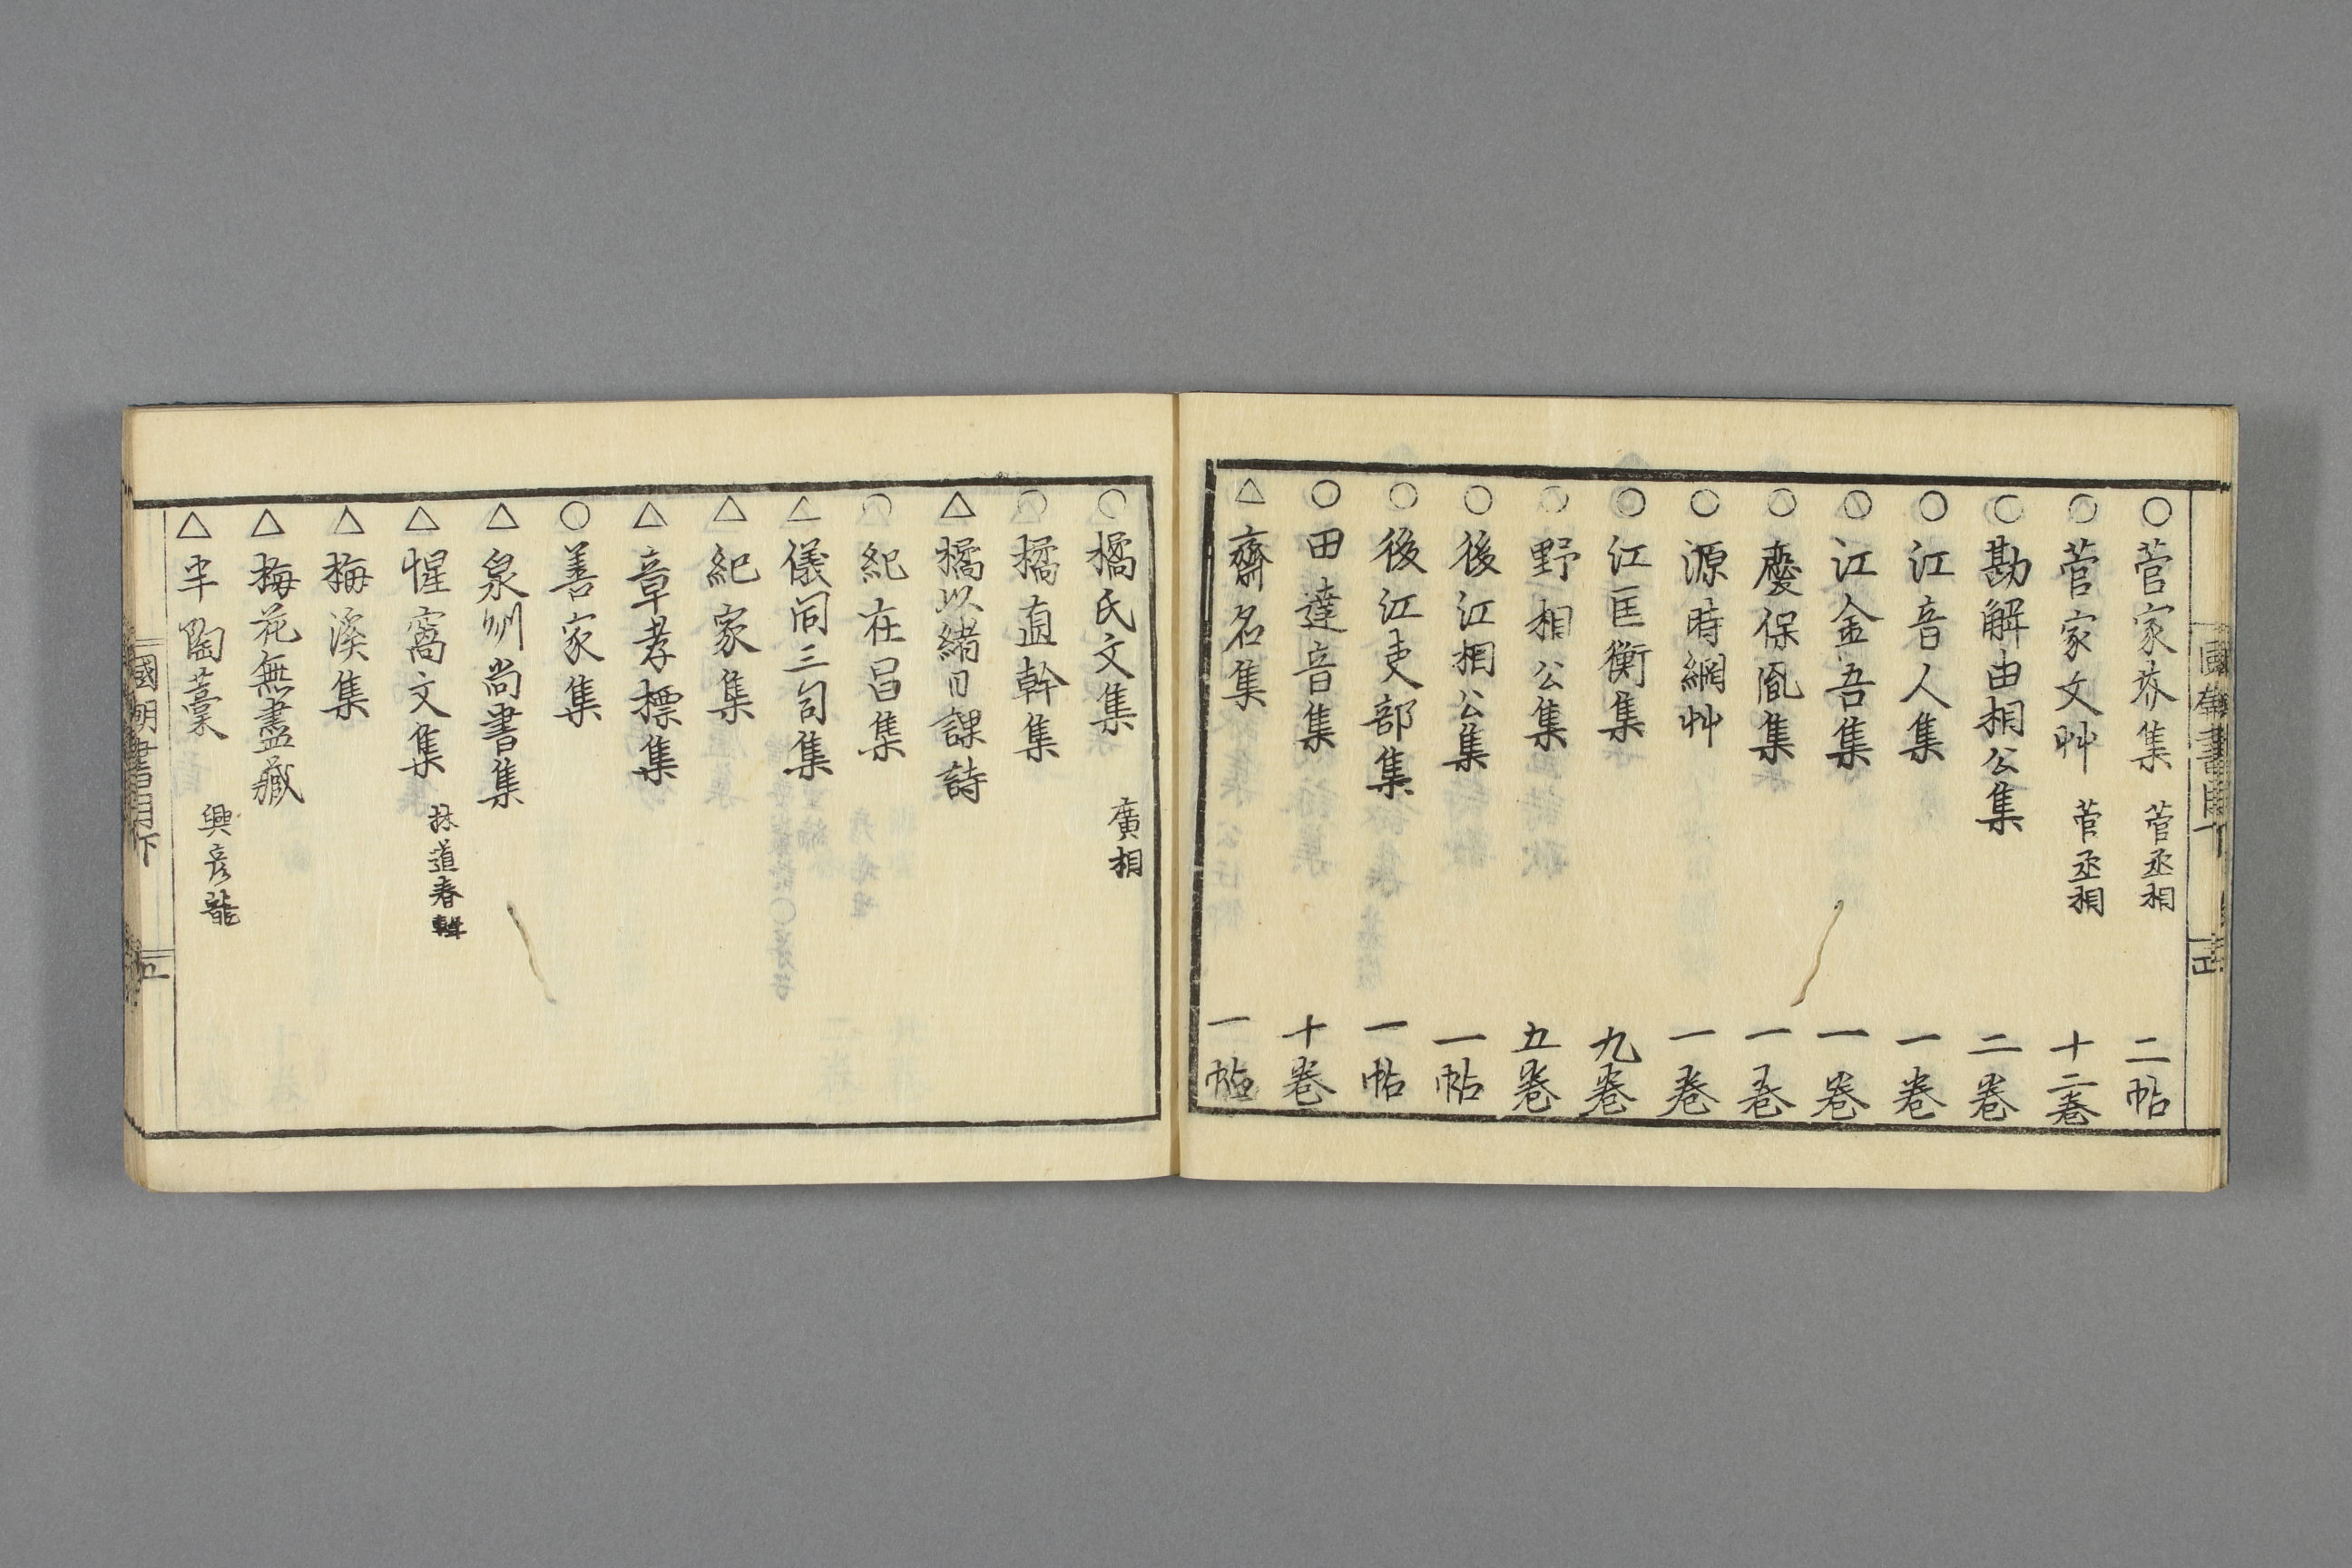 ○菅家後集 菅丞相 二帖
○菅家文艸 菅丞相 十二巻
○勘解由相公集 二巻
○江音人集 一巻
○江金吾集 一巻
○慶保胤集 一巻
○源時綱艸 一巻
○江匡衡集 九巻
○野相公集 五巻
○後江相公集 一帖
○後江吏部集 一帖
○田達音集 十巻
△齊名集 一帖
○橘氏文集 廣相
○橘直幹集
△橘以緒日課詩
○紀在昌集
△儀同三司集
△紀家集
△章孝標集
○善家集
△泉州尚書集
△惺窩文集 林道春輯
△梅溪集
△梅花無盡藏
△半陶藁 興彦龍
國朝書目下
五